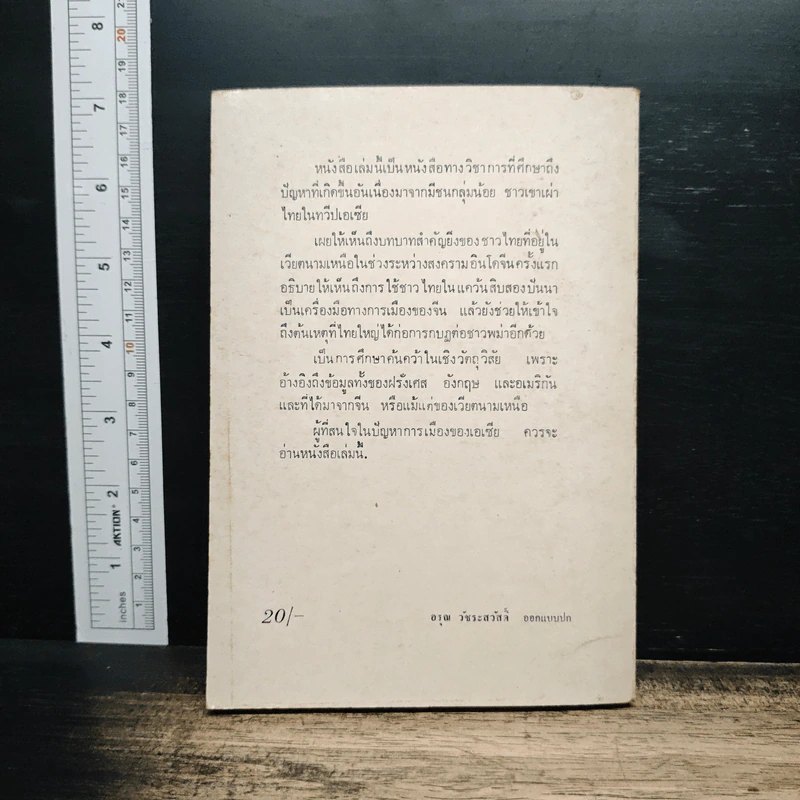 หนังสือเล่มนี้เป็นหนังสือทางวิชาการที่ศึกษาถึง
ปัญหาที่เกิดขึ้นอันเนื่องมาจากมีชนกลุ่มน้อย ชาวเขาเผ่า
ไทยในทวีปเอเซีย
เผยให้เห็นถึงบทบาทสำคัญยิ่งของชาวไทยที่อยู่ใน
เวียตนามเหนือในช่วงระหว่างสงครามอินโดจีนครั้งแรก
อธิบายให้เห็นถึงการใช้ชาวไทยในแคว้นสิบสองปันนา
เป็นเครื่องมือทางการเมืองของจีน แล้วยังช่วยให้เข้าใจ
ถึงต้นเหตุที่ไทยใหญ่ได้ก่อการกบฎต่อชาวพม่าอีกด้วย
เป็นการศึกษาค้นคว้าในเชิงวัตถุวิสัย เพราะ
อ้างอิงถึงข้อมูลทั้งของฝรั่งเศส อังกฤษ และอเมริกัน
และที่ได้มาจากจีน หรือแม้แต่ของเวียตนามเหนือ
ผู้ที่สนใจในปัญหาการเมืองของเอเซีย ควรจะ
อ่านหนังสือเล่มนี้.
20/-
อรุณ วัชระสวัสดิ์ ออกแบบปก
8
7
6
5
4
3
2
1
inches
AKTION
21
20
19
18
17
16
15
14
13
12
11
10
9
8
7
6
5
4
3
2
1